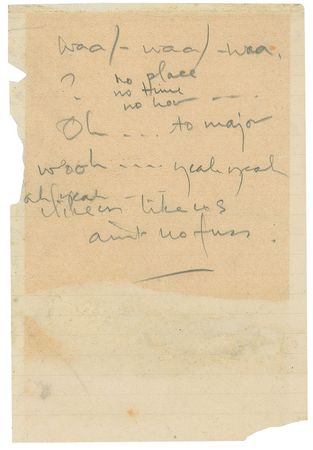 waa/- waa/-waa.
? no place
no time
no ----
Oh .... to major
wooh .... yeah yeah
ah/yeah
like us
aint no fuss.